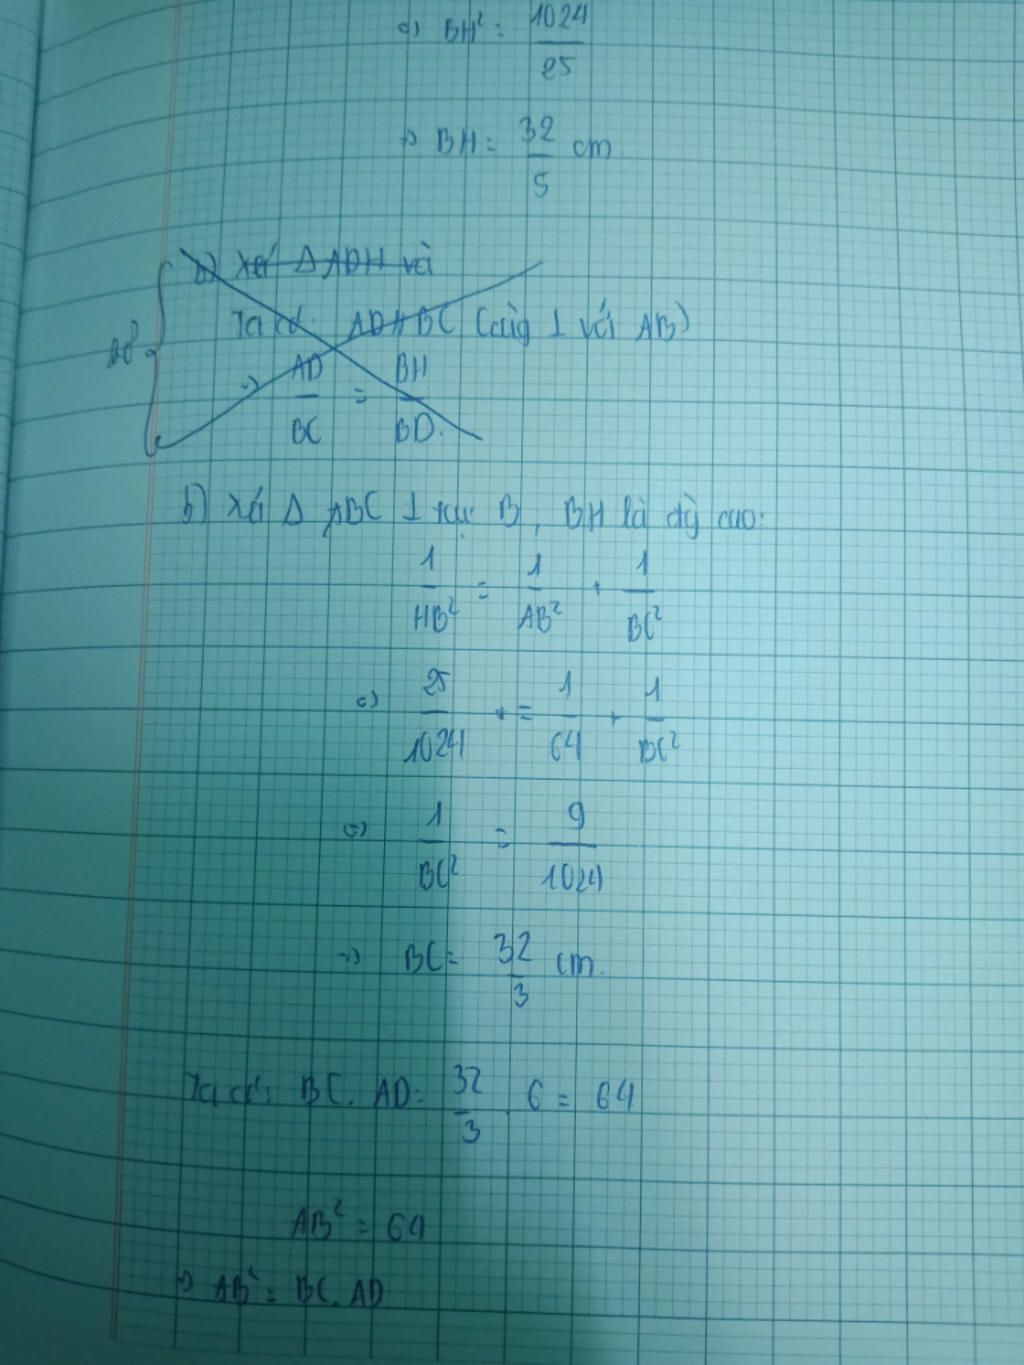 ⇔ BH² = 1024/25
⇒ BH = 32/5 cm
b) Xét Δ ADH và
Ta có: AD // BC (cùng ⊥ với AB)
⇒ AD/BC = BH/BD.
b) Xét Δ ABC ⊥ tại B, BH là đg cao:
1/HB² = 1/AB² + 1/BC²
⇔ 25/1024 = 1/64 + 1/BC²
⇔ 1/BC² = 9/1024
⇒ BC = 32/3 cm.
Ta có: BC. AD = 32/3 . 6 = 64
AB² = 64
⇒ AB² = BC. AD